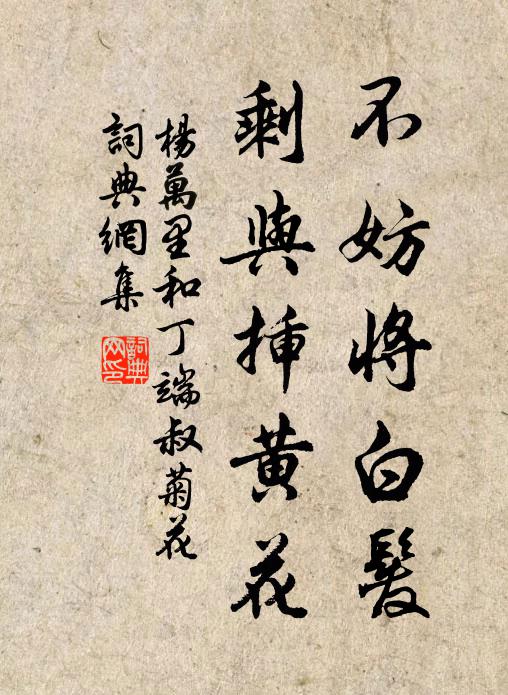 不妨將白髮
剩與插黃花
楊萬里和丁端叔菊花
詞典網集
詞典
网印